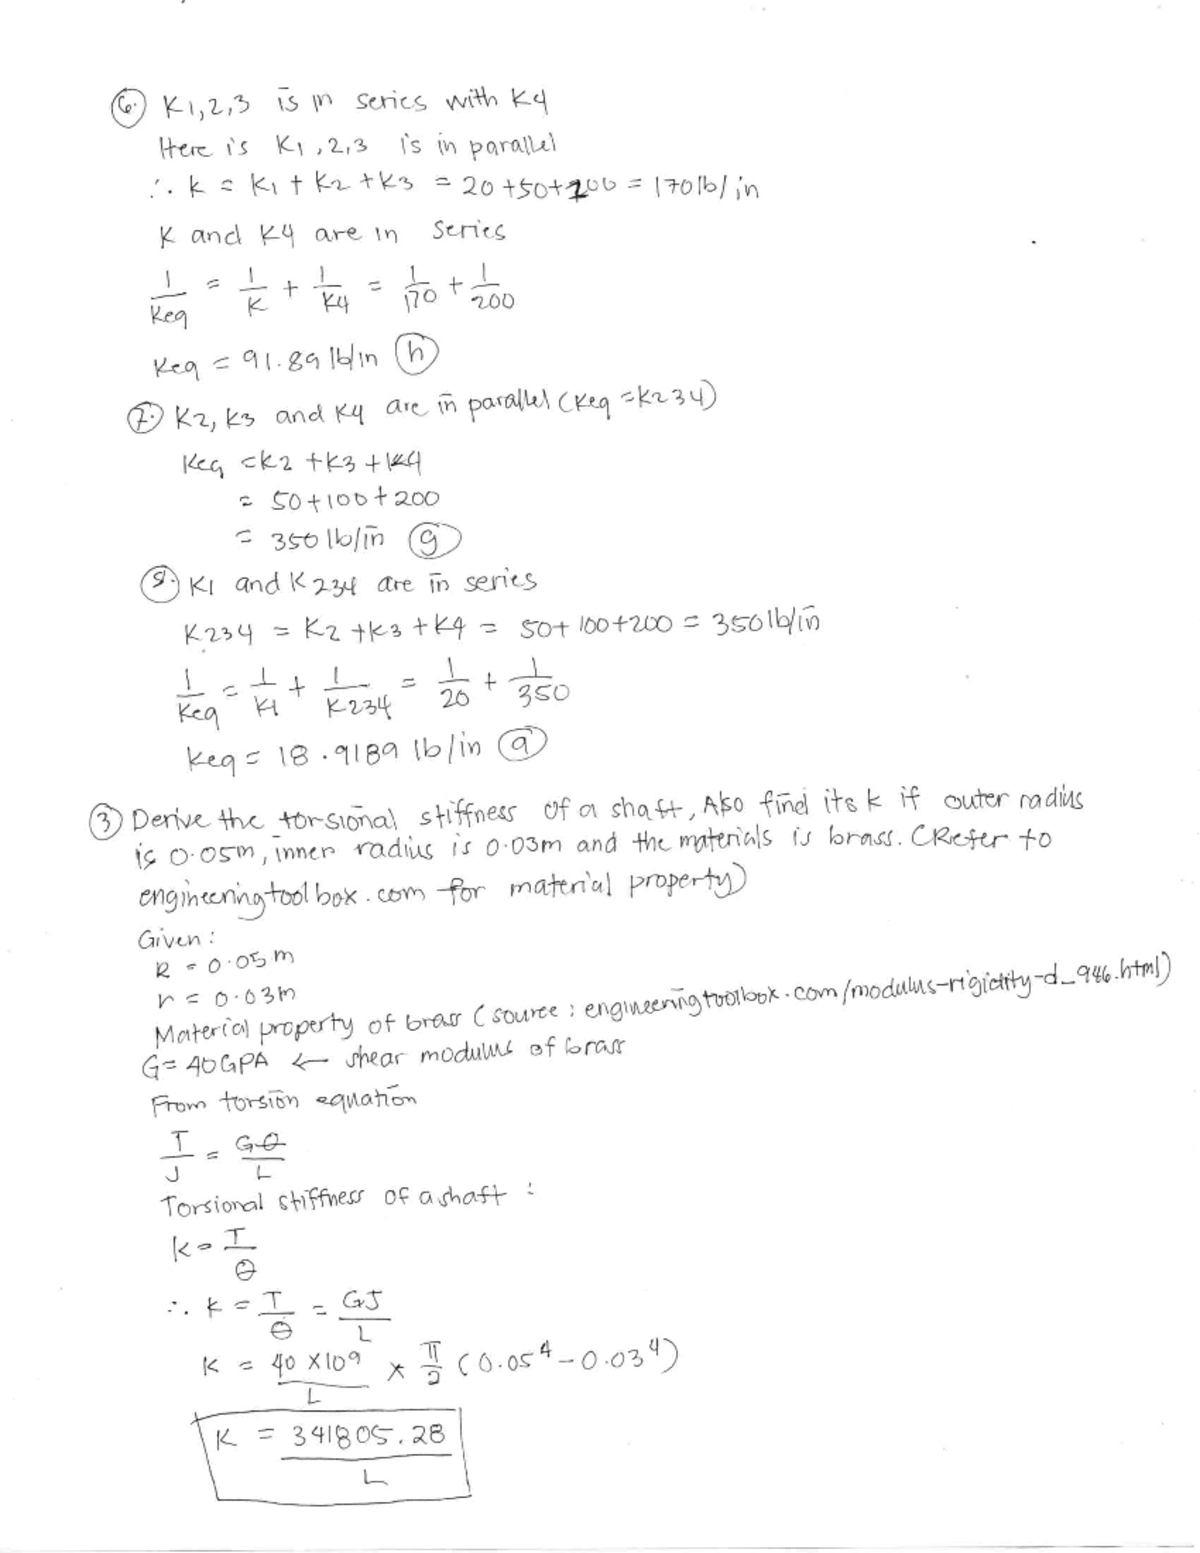 6. K1,2,3 is in series with K4
Here is K1,2,3 is in parallel
∴ k = K1 + K2 + K3 = 20+50+100 = 170 lb/in
K and K4 are in series
1/Keq = 1/K + 1/K4 = 1/170 + 1/200
Keq = 91.89 lb/in (h)
7. K2, K3 and K4 are in parallel (Keq = K234)
Keq = K2 + K3 + K4
= 50+100+200
= 350 lb/in (g)
8. K1 and K234 are in series
K234 = K2 + K3 + K4 = 50+100+200 = 350 lb/in
1/Keq = 1/K1 + 1/K234 = 1/20 + 1/350
Keq = 18.9189 lb/in (a)
3 Derive the torsional stiffness of a shaft, Also find its k if outer radius
is 0.05m, inner radius is 0.03m and the materials is brass. (Refer to
engineeringtoolbox.com for material property)
Given:
R = 0.05m
r = 0.03m
Material property of brass (source: engineeringtoolbox.com/modulus-rigidity-d_946.html)
G = 40 GPA ← shear modulus of brass
From torsion equation
T/J = Gθ/L
Torsional stiffness of a shaft:
K = T/θ
∴ k = T/θ = GJ/L
K = 40 x 10^9/L x π/2 (0.05^4 - 0.03^4)
K = 341805.28/L